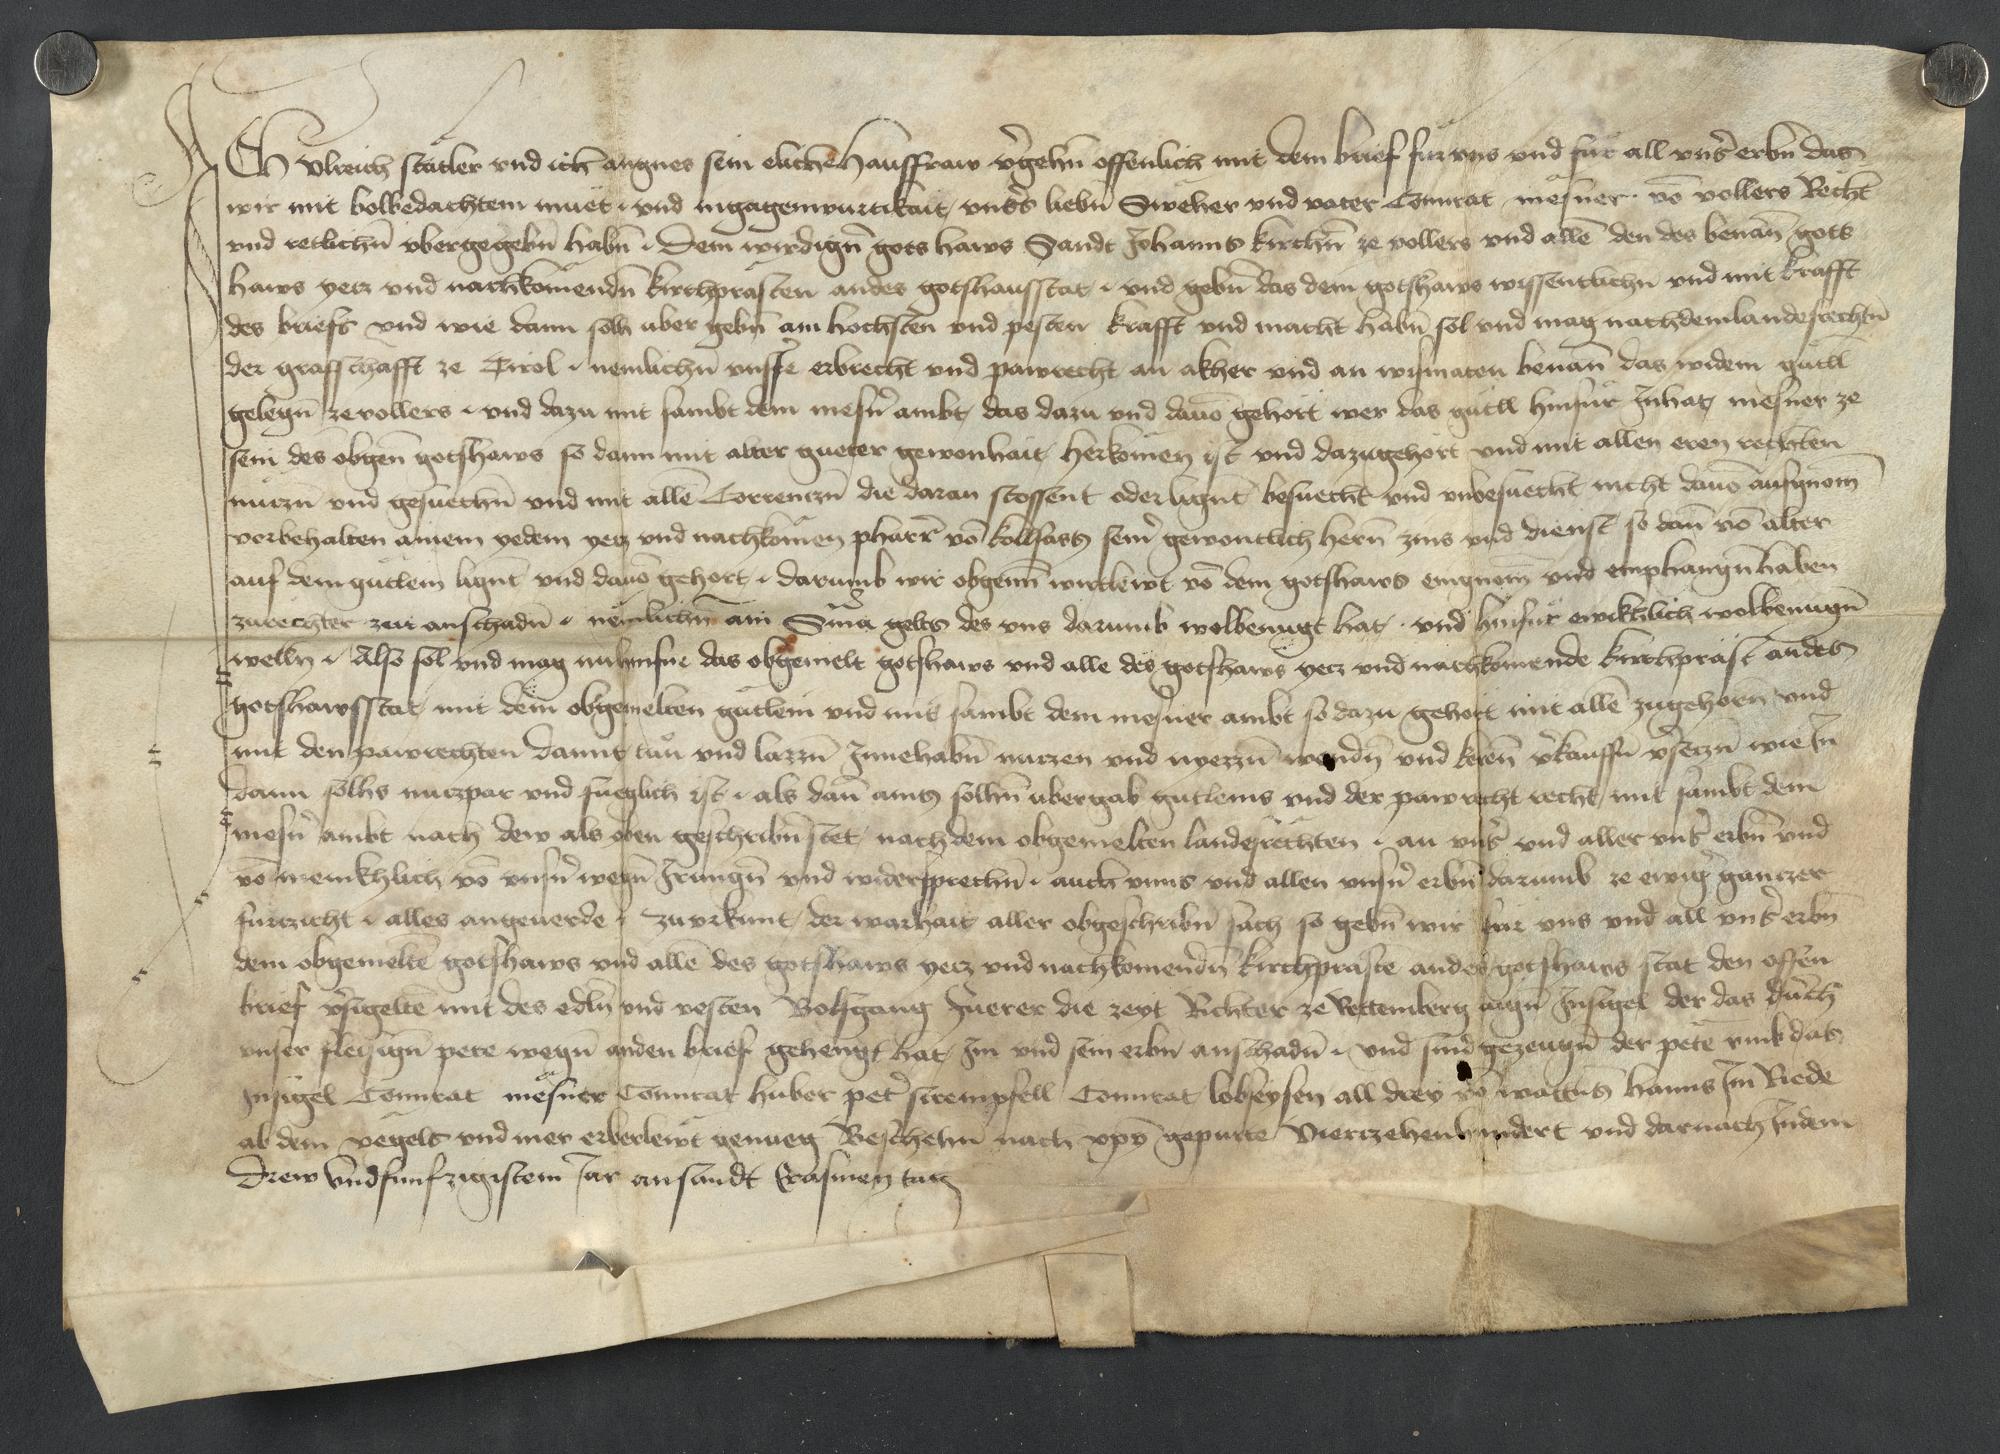 Ich Vlreich stätler vnd ich angnes sein elichew Hausfraw v̄gehn̄ offenlich mit dem brief fur vns vnd fur all vns̄ erbn̄ das
wir mit bolbedachtem muet vnd ingagenwurtikait vns̄s liebn̄ Sweher vnd vater Connrat mesner vō vollers Recht
vnd retlichn̄ vbergegebn̄ habn̄ Dem wirdign̄ gots haws Sandt Johanns kirchn̄ ze vollers vnd allē den des benan̄ gots
haws yecz vnd nachkomendn̄ kirchprästen andes gotshausstat vnd gebn̄ das dem gotshaws wissentlichn vnd mit krafft
des briefs vnd wie dann solh uber gebn̄ am hochsten vnd pesten krafft vnd macht habn̄ sol vnd mag nachdemlandesrechtn̄
der graffschafft ze Tirol nemlichn̄ vnsr̄e erbrecht vnd pawrecht an akher vnd an wismaten benan̄ das widem gutll
gelegn̄ ze vollers vnd dazu mit sambt dem mesn̄ ambt das dazu vnd dauō gehort wer das gutll hinfur Inhat mesner ze
sein des obgen̄ gotshaws so dann mit alter gueter gewonhait herkomen ist vnd dazugehort vnd mit allen eren rechten
nuczn̄ vnd gesuechn̄ vnd mit allē Torrenczn̄ die daran stossent oder lignt besuecht vnd vnbesuecht nicht dauō ausgnom̄
vorbehalten ainem yedem yecz vnd nachkomen pharr̄ vō kollsass sein̄ gewontlich hern̄ zins vnd dienst so dan̄ vō alter
auf dem gutlein lignt vnd dauō gehort darumb wir obgenn̄ wirtlewt vō dem gotshaws eingnom̄ vnd emphangn̄ haben
zurechter zeit anschadn̄ nemlichn̄ ain Sum̄a gelts des vns darumb wolbenugt hat vnd hinfur ewikhlich wolbenugn̄
welln Also sol vnd mag nuhinfur das obgemelt gotshaws vnd alle des gotshaws yecz vnd nachkomende kirchpräst andes
gotshawsstat mit dem obgemelten gutlein vnd mit sambt dem mesner ambt so dazu gehort mit allē zugehorn̄ vnd
mit den pawrechten damit tun vnd lazzn̄ Innehabn̄ nuczen vnd nyezzn̄ wendn vnd kern̄ v̄kauffn̄ v̄seczn̄ wie In̄
dann solhs nuczpar vnd fueglich ist als dan̄ ains solhn̄ ubergab gutleins vnd der pawrecht recht mit sambt dem
mesn̄ ambt nach dem als oben geschribn̄ stet nach dem obgemelten landesrechten an vns̄ vnd aller vns̄ erbn̄ vnd
vō menikhlich vō vnsn̄ wegn̄ Irrungn̄ vnd widersprechn̄ auch vnns vnd allen vnsn̄ erbn̄ darumb ze ewiḡ ganczer
furczicht alles angeuerde zu vrkunt der warhait aller obgeschribn̄ sach so gebn̄ wir fur vns vnd all vns̄ erbn̄
dem obgemeltē gotshaws vnd allē des gotshaws yecz vnd nachkomendn̄ kirchprästē andes gotshaws stat den offen
brief v̄sigeltē mit des edln̄ vnd vesten Wolfgang Juerer die zeyt Richter ze Rettemberg aign̄ Insigel der das durch
vnser fleisign̄ pete wegn̄ anden brief gehengt hat Im vnd sein erbn̄ anschadn̄ vnd sind gezeugn̄ der pete vmb das
Insigel Connrat mesner Connrat huber pet̄ strempfell Connrat lobseysen all drey vō wattens hanns Im Riede
ab dem vegels vnd mer erberlewt genueg Beschehn̄ nach xpī gepurte Vierczehenhundert vnd darnach Indem
Drew vndfunfzigistem Jar an sandt Erasmen tag